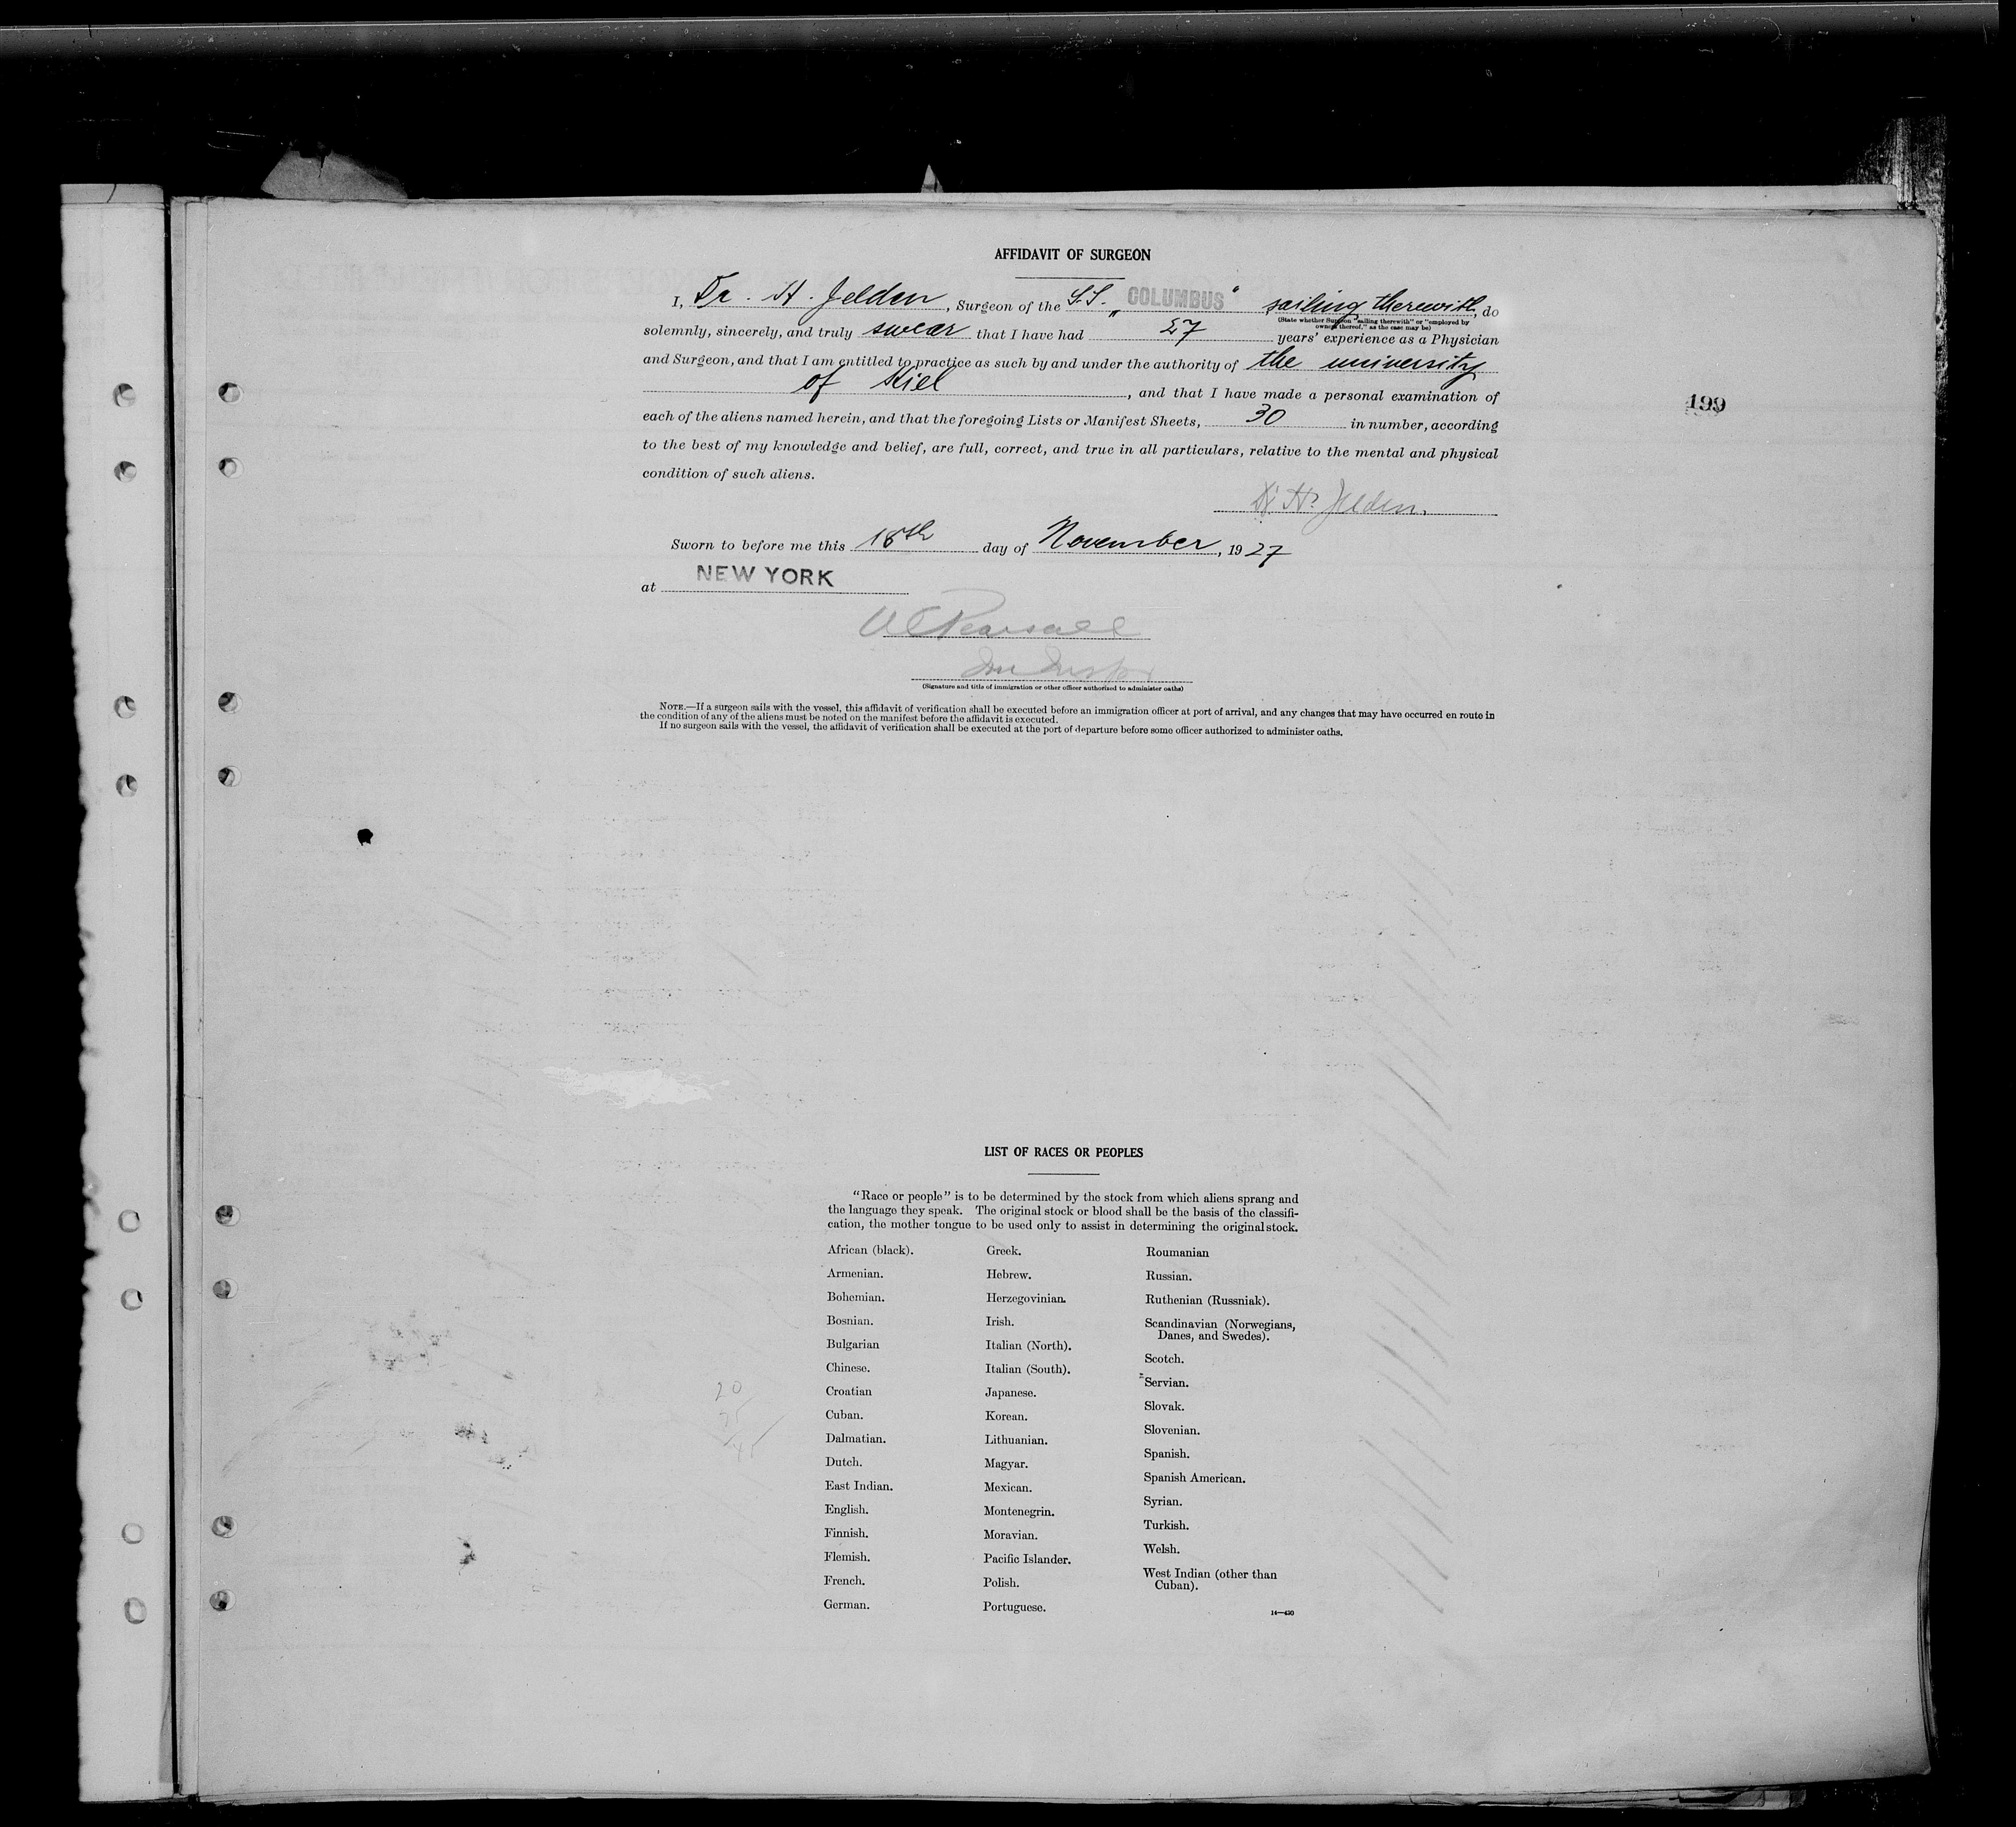 AFFIDAVIT OF SURGEON
I, Dr. H. Jelden, Surgeon of the S.S. „COLUMBUS" sailing therewith, do
(State whether Surgeon "sailing therewith" or "employed by
owners thereof," as the case may be)
solemnly, sincerely, and truly swear that I have had 27 years' experience as a Physician
and Surgeon, and that I am entitled to practice as such by and under the authority of the university
of Kiel, and that I have made a personal examination of
199
each of the aliens named herein, and that the foregoing Lists or Manifest Sheets, 30 in number, according
to the best of my knowledge and belief, are full, correct, and true in all particulars, relative to the mental and physical
condition of such aliens.
Dr. H. Jelden.
Sworn to before me this 18th day of November, 1927
at NEW YORK
Pearsall
(Signature and title of immigration or other officer authorized to administer oaths)
NOTE.—If a surgeon sails with the vessel, this affidavit of verification shall be executed before an immigration officer at port of arrival, and any changes that may have occurred en route in
the condition of any of the aliens must be noted on the manifest before the affidavit is executed.
If no surgeon sails with the vessel, the affidavit of verification shall be executed at the port of departure before some officer authorized to administer oaths.
LIST OF RACES OR PEOPLES
"Race or people" is to be determined by the stock from which aliens sprang and
the language they speak. The original stock or blood shall be the basis of the classifi-
cation, the mother tongue to be used only to assist in determining the original stock.
African (black).
Armenian.
Bohemian.
Bosnian.
Bulgarian
Chinese.
Croatian
Cuban.
Dalmatian.
Dutch.
East Indian.
English.
Finnish.
Flemish.
French.
German.
Greek.
Hebrew.
Herzegovinian.
Irish.
Italian (North).
Italian (South).
Japanese.
Korean.
Lithuanian.
Magyar.
Mexican.
Montenegrin.
Moravian.
Pacific Islander.
Polish.
Portuguese.
Roumanian
Russian.
Ruthenian (Russniak).
Scandinavian (Norwegians,
Danes, and Swedes).
Scotch.
Servian.
Slovak.
Slovenian.
Spanish.
Spanish American.
Syrian.
Turkish.
Welsh.
West Indian (other than
Cuban).
14—430
20
45